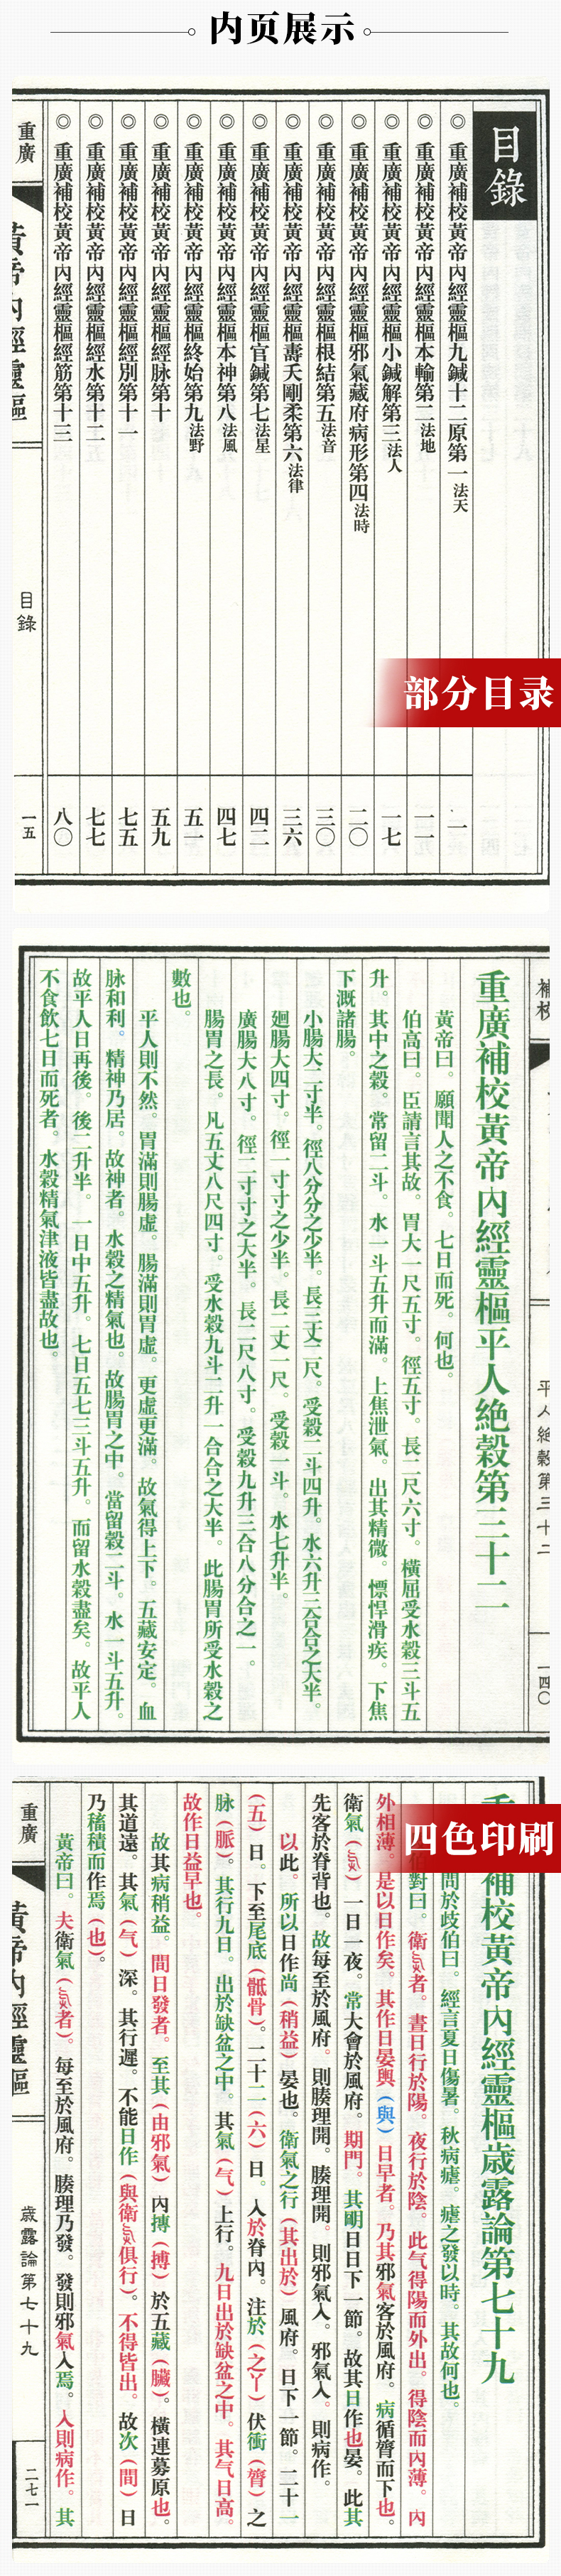 内页展示
目錄
◎ 重廣補校黃帝內經靈樞九鍼十二原第一 法天 一
◎ 重廣補校黃帝內經靈樞本輸第二 法地 一一
◎ 重廣補校黃帝內經靈樞小鍼解第三 法人 一七
◎ 重廣補校黃帝內經靈樞邪氣藏府病形第四 法時 二〇
◎ 重廣補校黃帝內經靈樞根結第五 法音 三〇
◎ 重廣補校黃帝內經靈樞壽夭剛柔第六 法律 三六
◎ 重廣補校黃帝內經靈樞官鍼第七 法星 四二
◎ 重廣補校黃帝內經靈樞本神第八 法風 四七
◎ 重廣補校黃帝內經靈樞終始第九 法野 五一
◎ 重廣補校黃帝內經靈樞經脉第十 五九
◎ 重廣補校黃帝內經靈樞經別第十一 七五
◎ 重廣補校黃帝內經靈樞經水第十二 七七
◎ 重廣補校黃帝內經靈樞經筋第十三 八〇
重廣
黃帝內經靈樞
目錄
一五
部分目录
補校
平人絶穀第三十二
一四〇
重廣補校黃帝內經靈樞平人絶穀第三十二
黃帝曰。願聞人之不食。七日而死。何也。
伯高曰。臣請言其故。胃大一尺五寸。徑五寸。長二尺六寸。橫屈受水穀三斗五
升。其中之穀。常留二斗。水一斗五升而滿。上焦泄氣。出其精微。慓悍滑疾。下焦
下溉諸腸。
小腸大二寸半。徑八分分之少半。長三丈二尺。受穀二斗四升。水六升三合合之大半。
廻腸大四寸。徑一寸寸之少半。長二丈一尺。受穀一斗。水七升半。
廣腸大八寸。徑二寸寸之大半。長二尺八寸。受穀九升三合八分合之一。
腸胃之長。凡五丈八尺四寸。受水穀九斗二升一合合之大半。此腸胃所受水穀之
數也。
平人則不然。胃滿則腸虛。腸滿則胃虛。更虛更滿。故氣得上下。五藏安定。血
脉和利。精神乃居。故神者。水穀之精氣也。故腸胃之中。當留穀二斗。水一斗五升。
故平人日再後。後二升半。一日中五升。七日五七三斗五升。而留水穀盡矣。故平人
不食飲七日而死者。水穀精氣津液皆盡故也。
四色印刷
補校黃帝內經靈樞歲露論第七十九
問於歧伯曰。經言夏日傷暑。秋病瘧。瘧之發以時。其故何也。
對曰。衛氣者。晝日行於陽。夜行於陰。此气得陽而外出。得陰而內薄。內
外相薄。是以日作矣。其作日晏與（與）日早者。乃其邪氣客於風府。病循膂而下也。
衛氣（氣）一日一夜。常大會於風府。期門。其明日日下一節。故其日作也晏。此其
先客於脊背也。故每至於風府。則腠理開。腠理開。則邪氣入。邪氣入。則病作。
以此。所以日作尚（稍益）晏也。衛氣之行（其出於）風府。日下一節。二十一
（五）日。下至尾底（骶骨）。二十二（六）日。入於脊內。注於（之）伏衝（膂）之
脉（脈）。其行九日。出於缺盆之中。其氣（气）上行。九日出於缺盆之中。其气日高。
故作日益早也。
故其病稍益。間日發者。至其（由邪氣）內搏（搏）於五藏（臟）。橫連募原也。
其道遠。其氣（气）深。其行遲。不能日作（與衛氣俱行）。不得皆出。故次（間）日
乃穡積而作焉（也）。
黃帝曰。夫衛氣（氣者）。每至於風府。腠理乃發。發則邪氣入焉。入則病作。其
重廣
黃帝內經靈樞
歲露論第七十九
二七一